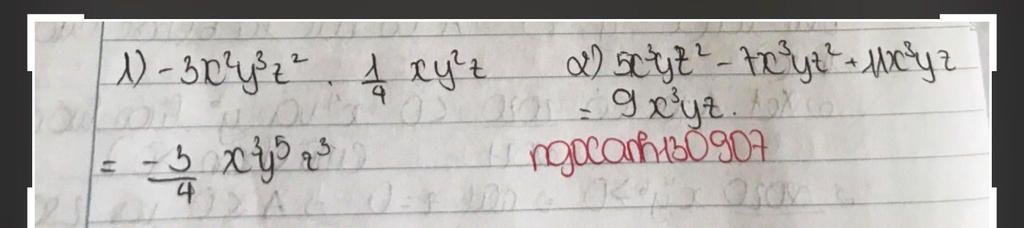 1) -3x²y³z² . 1/4 xy²z
= -3/4 x³y⁵z³
2) 5x³yz² - 7x³yz² + 11x³yz
= 9x³yz.
ngocanh130907